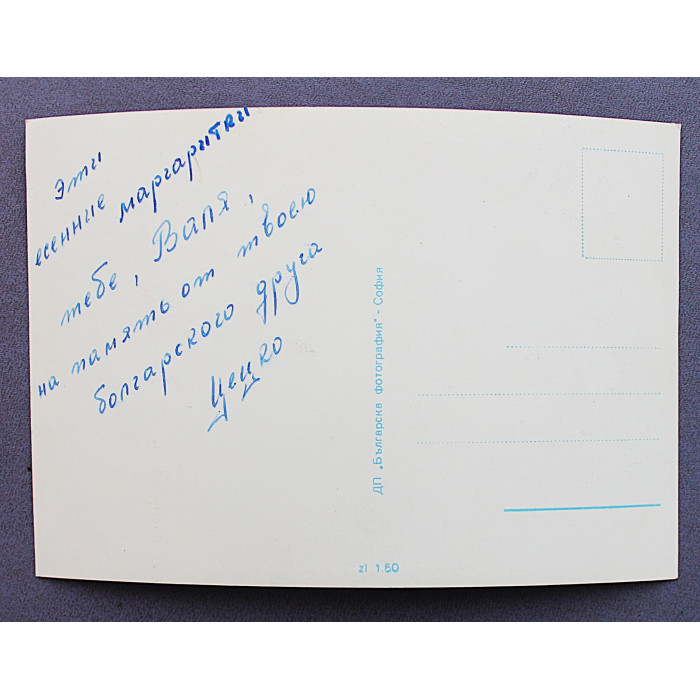 Эти
есенние маргаритки
тебе, Валя,
на память от твоею
болгарского друга
Цецко
ДП „Българска фотография" - София
zl 1.50